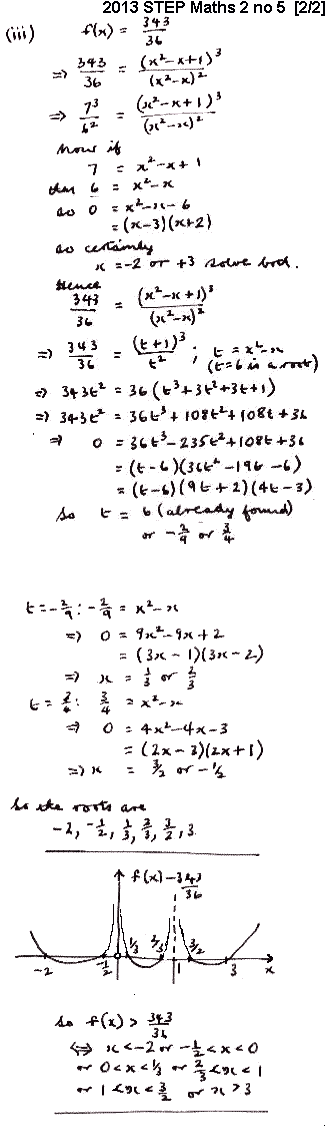 2013 STEP Maths 2 no 5 [2/2]
(iii) f(x) = 343/36
⇒ 343/36 = (x²-x+1)³/(x²-x)²
⇒ 7³/6² = (x²-x+1)³/(x²-x)²
Now if
7 = x²-x+1
then 6 = x²-x
so 0 = x²-x-6
= (x-3)(x+2)
so certainly
x = -2 or +3 solve both.
Hence
343/36 = (x²-x+1)³/(x²-x)²
⇒ 343/36 = (t+1)³/t² ; t = x²-x
(t=6 is a root)
⇒ 343t² = 36(t³+3t²+3t+1)
⇒ 343t² = 36t³+108t²+108t+36
⇒ 0 = 36t³-235t²+108t+36
= (t-6)(36t²-19t-6)
= (t-6)(9t+2)(4t-3)
So t = 6 (already found)
or -2/9 or 3/4
t=-2/9: -2/9 = x²-x
⇒ 0 = 9x²-9x+2
= (3x-1)(3x-2)
⇒ x = 1/3 or 2/3
t=3/4: 3/4 = x²-x
⇒ 0 = 4x²-4x-3
= (2x-3)(2x+1)
⇒ x = 3/2 or -1/2
So the roots are
-2, -1/2, 1/3, 2/3, 3/2, 3.
f(x) - 343/36
-2 -1/2 0 1/3 2/3 1 3/2 3 x
So f(x) > 343/36
⇔ x<-2 or -1/2<x<0
or 0<x<1/3 or 2/3<x<1
or 1<x<3/2 or x>3